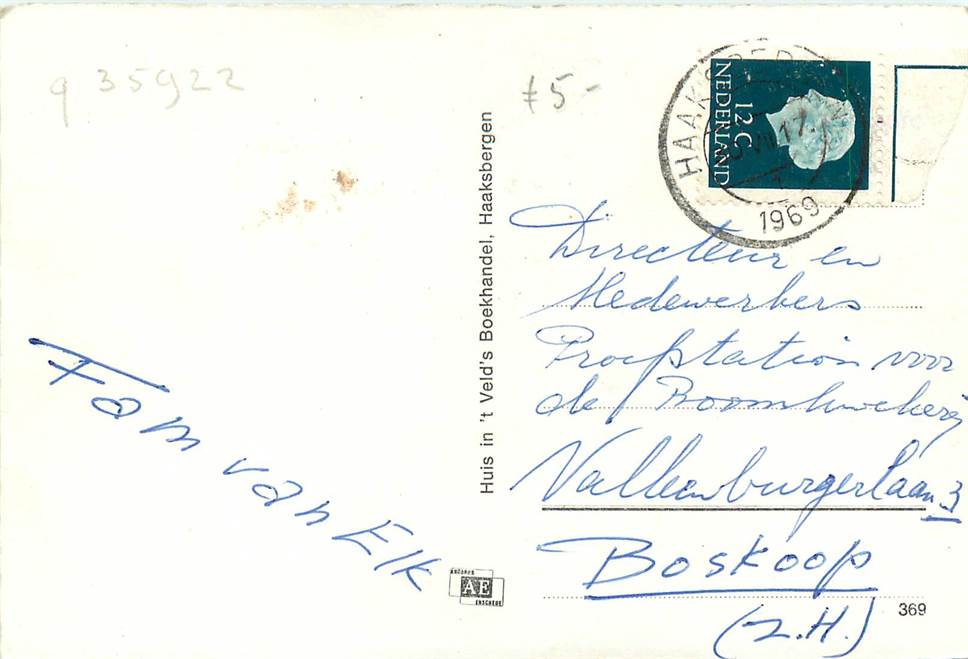 q 35922
f5-
HAAKSBERGEN
17
1969
12 C
NEDERLAND
Huis in 't Veld's Boekhandel, Haaksbergen
Directeur en
Medewerkers
Proefstation voor
de Boomkwekerij
Valkenburgerlaan 3
Boskoop
(Z.H.)
Fam van Elk
AE
ENSCHEDE
369